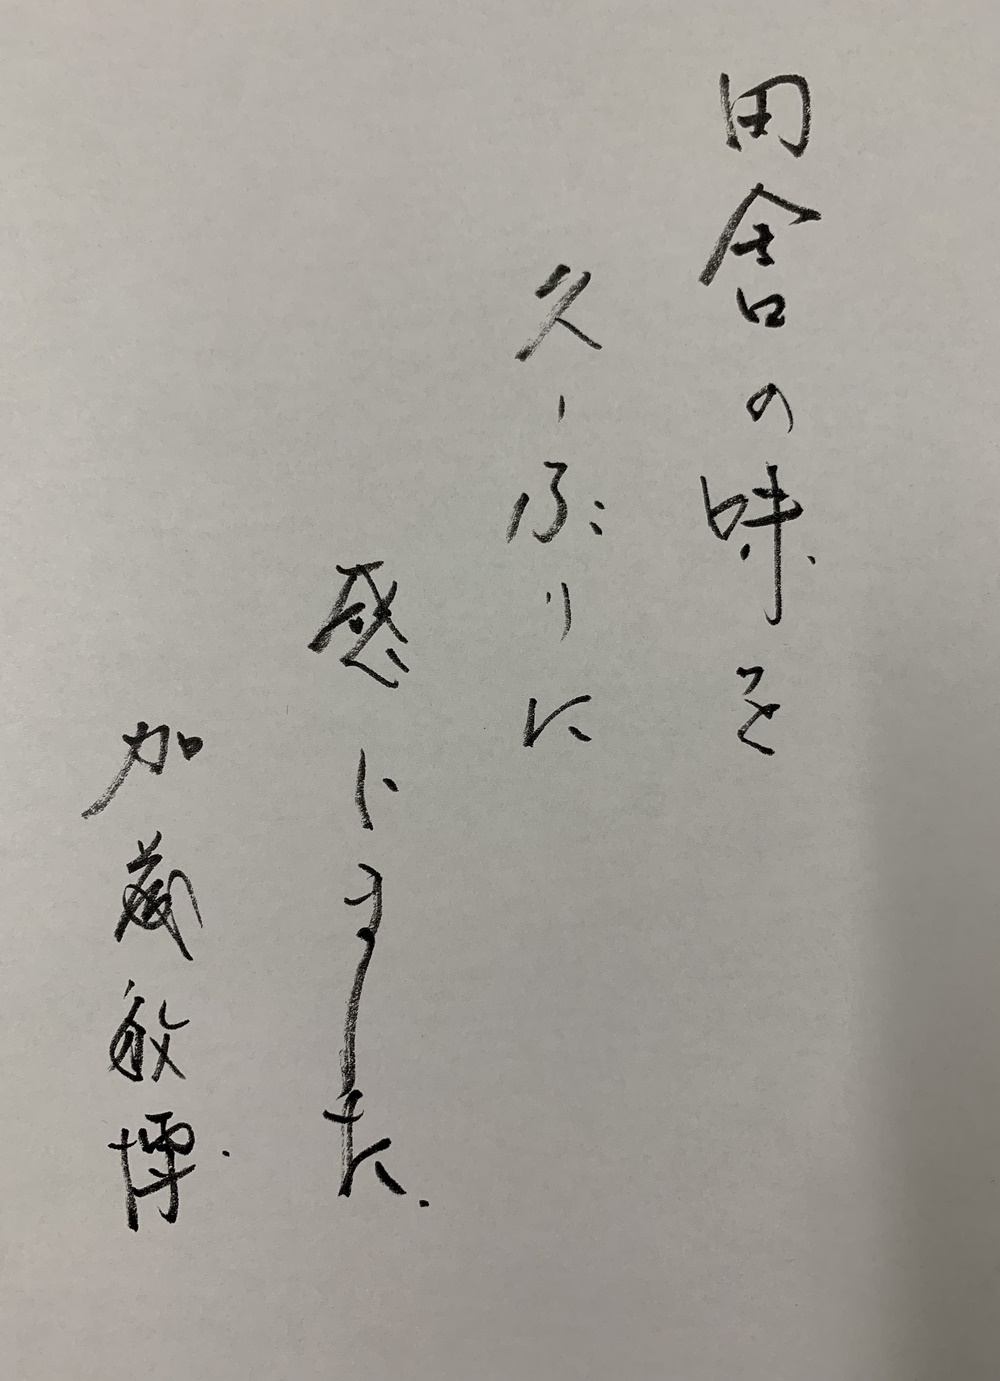 田舎の味を
久しぶりに
感じました.
加藏敏博.